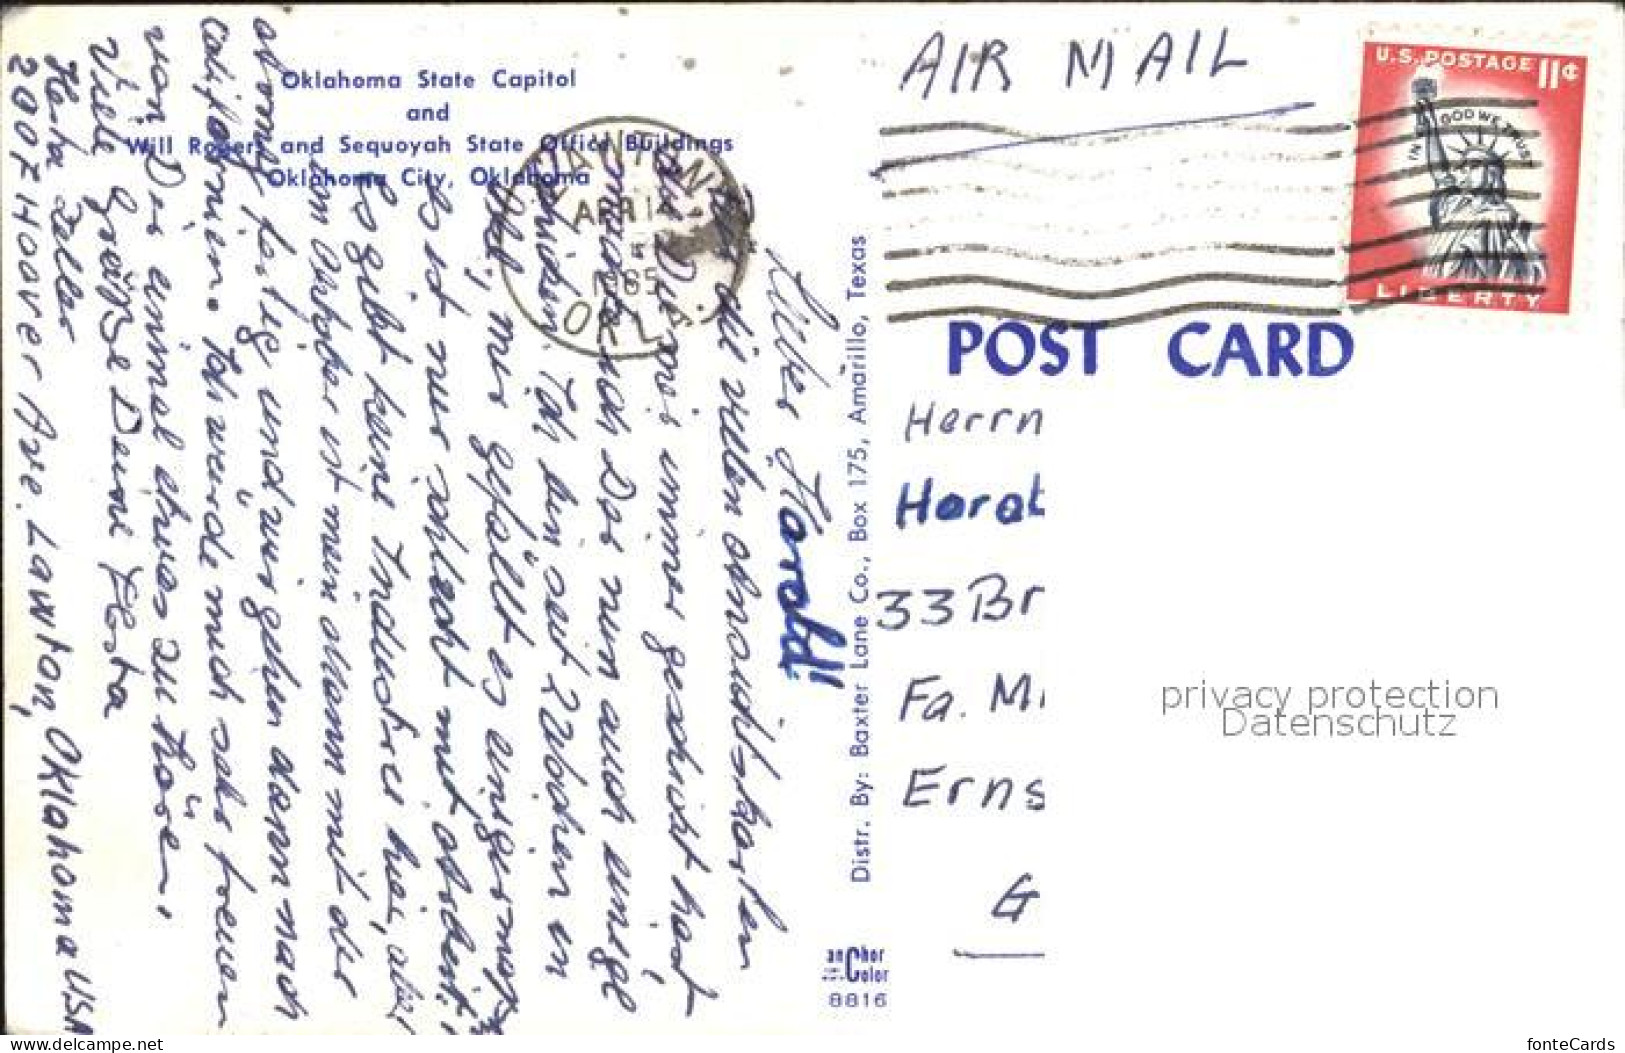 Oklahoma State Capitol
and
Will Rogers and Sequoyah State Office Buildings
Oklahoma City, Oklahoma
LAWTON
APR 14
1965
OKLA.
AIR MAIL
U.S. POSTAGE 11¢
IN GOD WE TRUST
LIBERTY
POST CARD
Herrn
Haral
33 Br
Fa. M
Erns
G
Distr. By: Baxter Lane Co., Box 175, Amarillo, Texas
anChor
Color
8816
Lieber Harald!
die vielen Ansichtskarten
die Du mir immer geschickt hast,
möchte ich Dir nun auch einige
schicken. Ich bin seit 2 Wochen in
mir gefällt es einigermaßen
Es ist nur schlecht mit Arbeit,
Es gibt keine Industrie hier, aber
im Oktober ist mein Mann mit der
Army fertig und wir gehen dann nach
Californien. Ich würde mich sehr freuen
von Dir einmal etwas zu hören.
Viele Grüße Deine Herta
Herta Zeller
2007 Hoover Ave. Lawton, Oklahoma USA
privacy protection
Datenschutz
www.delcampe.net
fonteCards